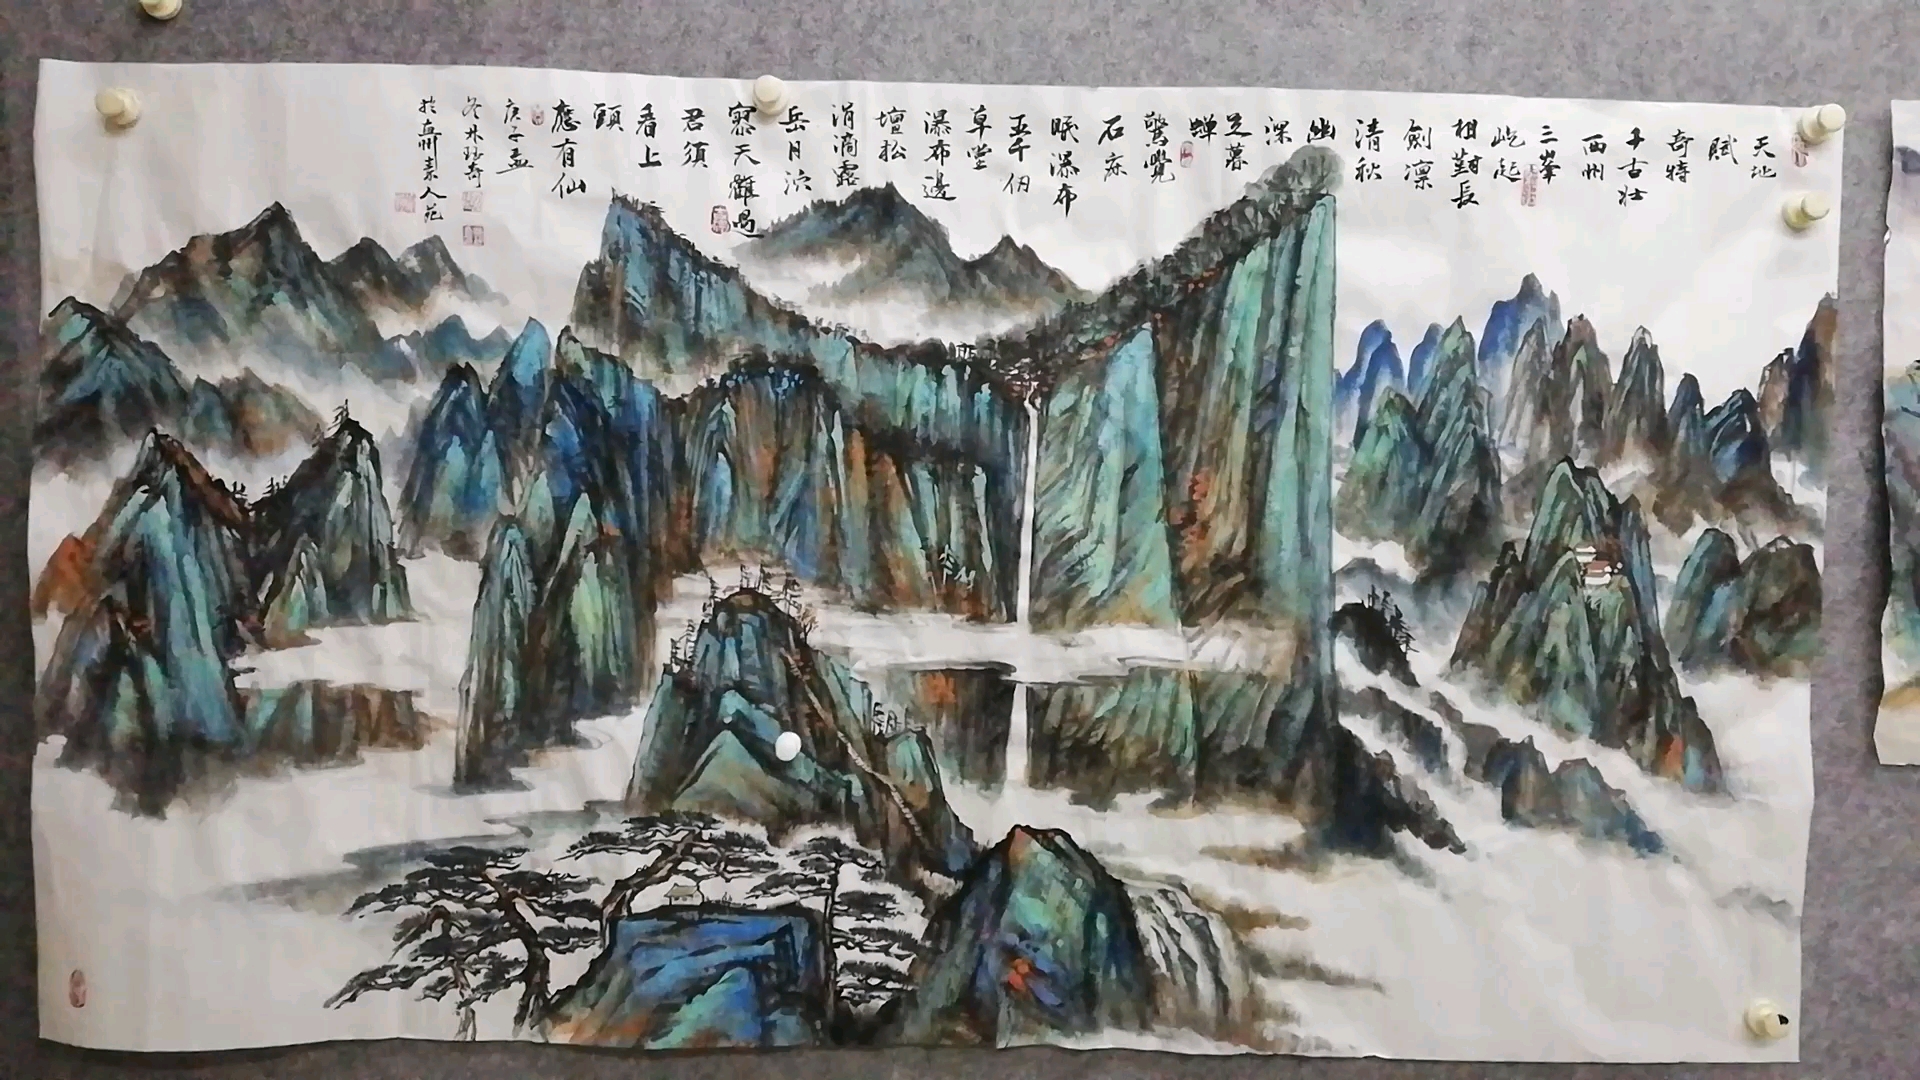 天地
賦
奇特
千古壯
西州
三峯
屹起
相對長
劍凛
清秋
幽
深
足暮
蟬
驚覺
石床
眠瀑布
五千仞
草堂
瀑布邊
壇松
涓滴露
岳月泬
寥天鶴過
君須
看上
頭
應有仙
庚子孟
冬林